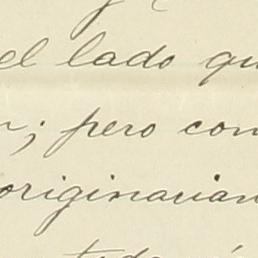 el lado qu
; pero con
originarian